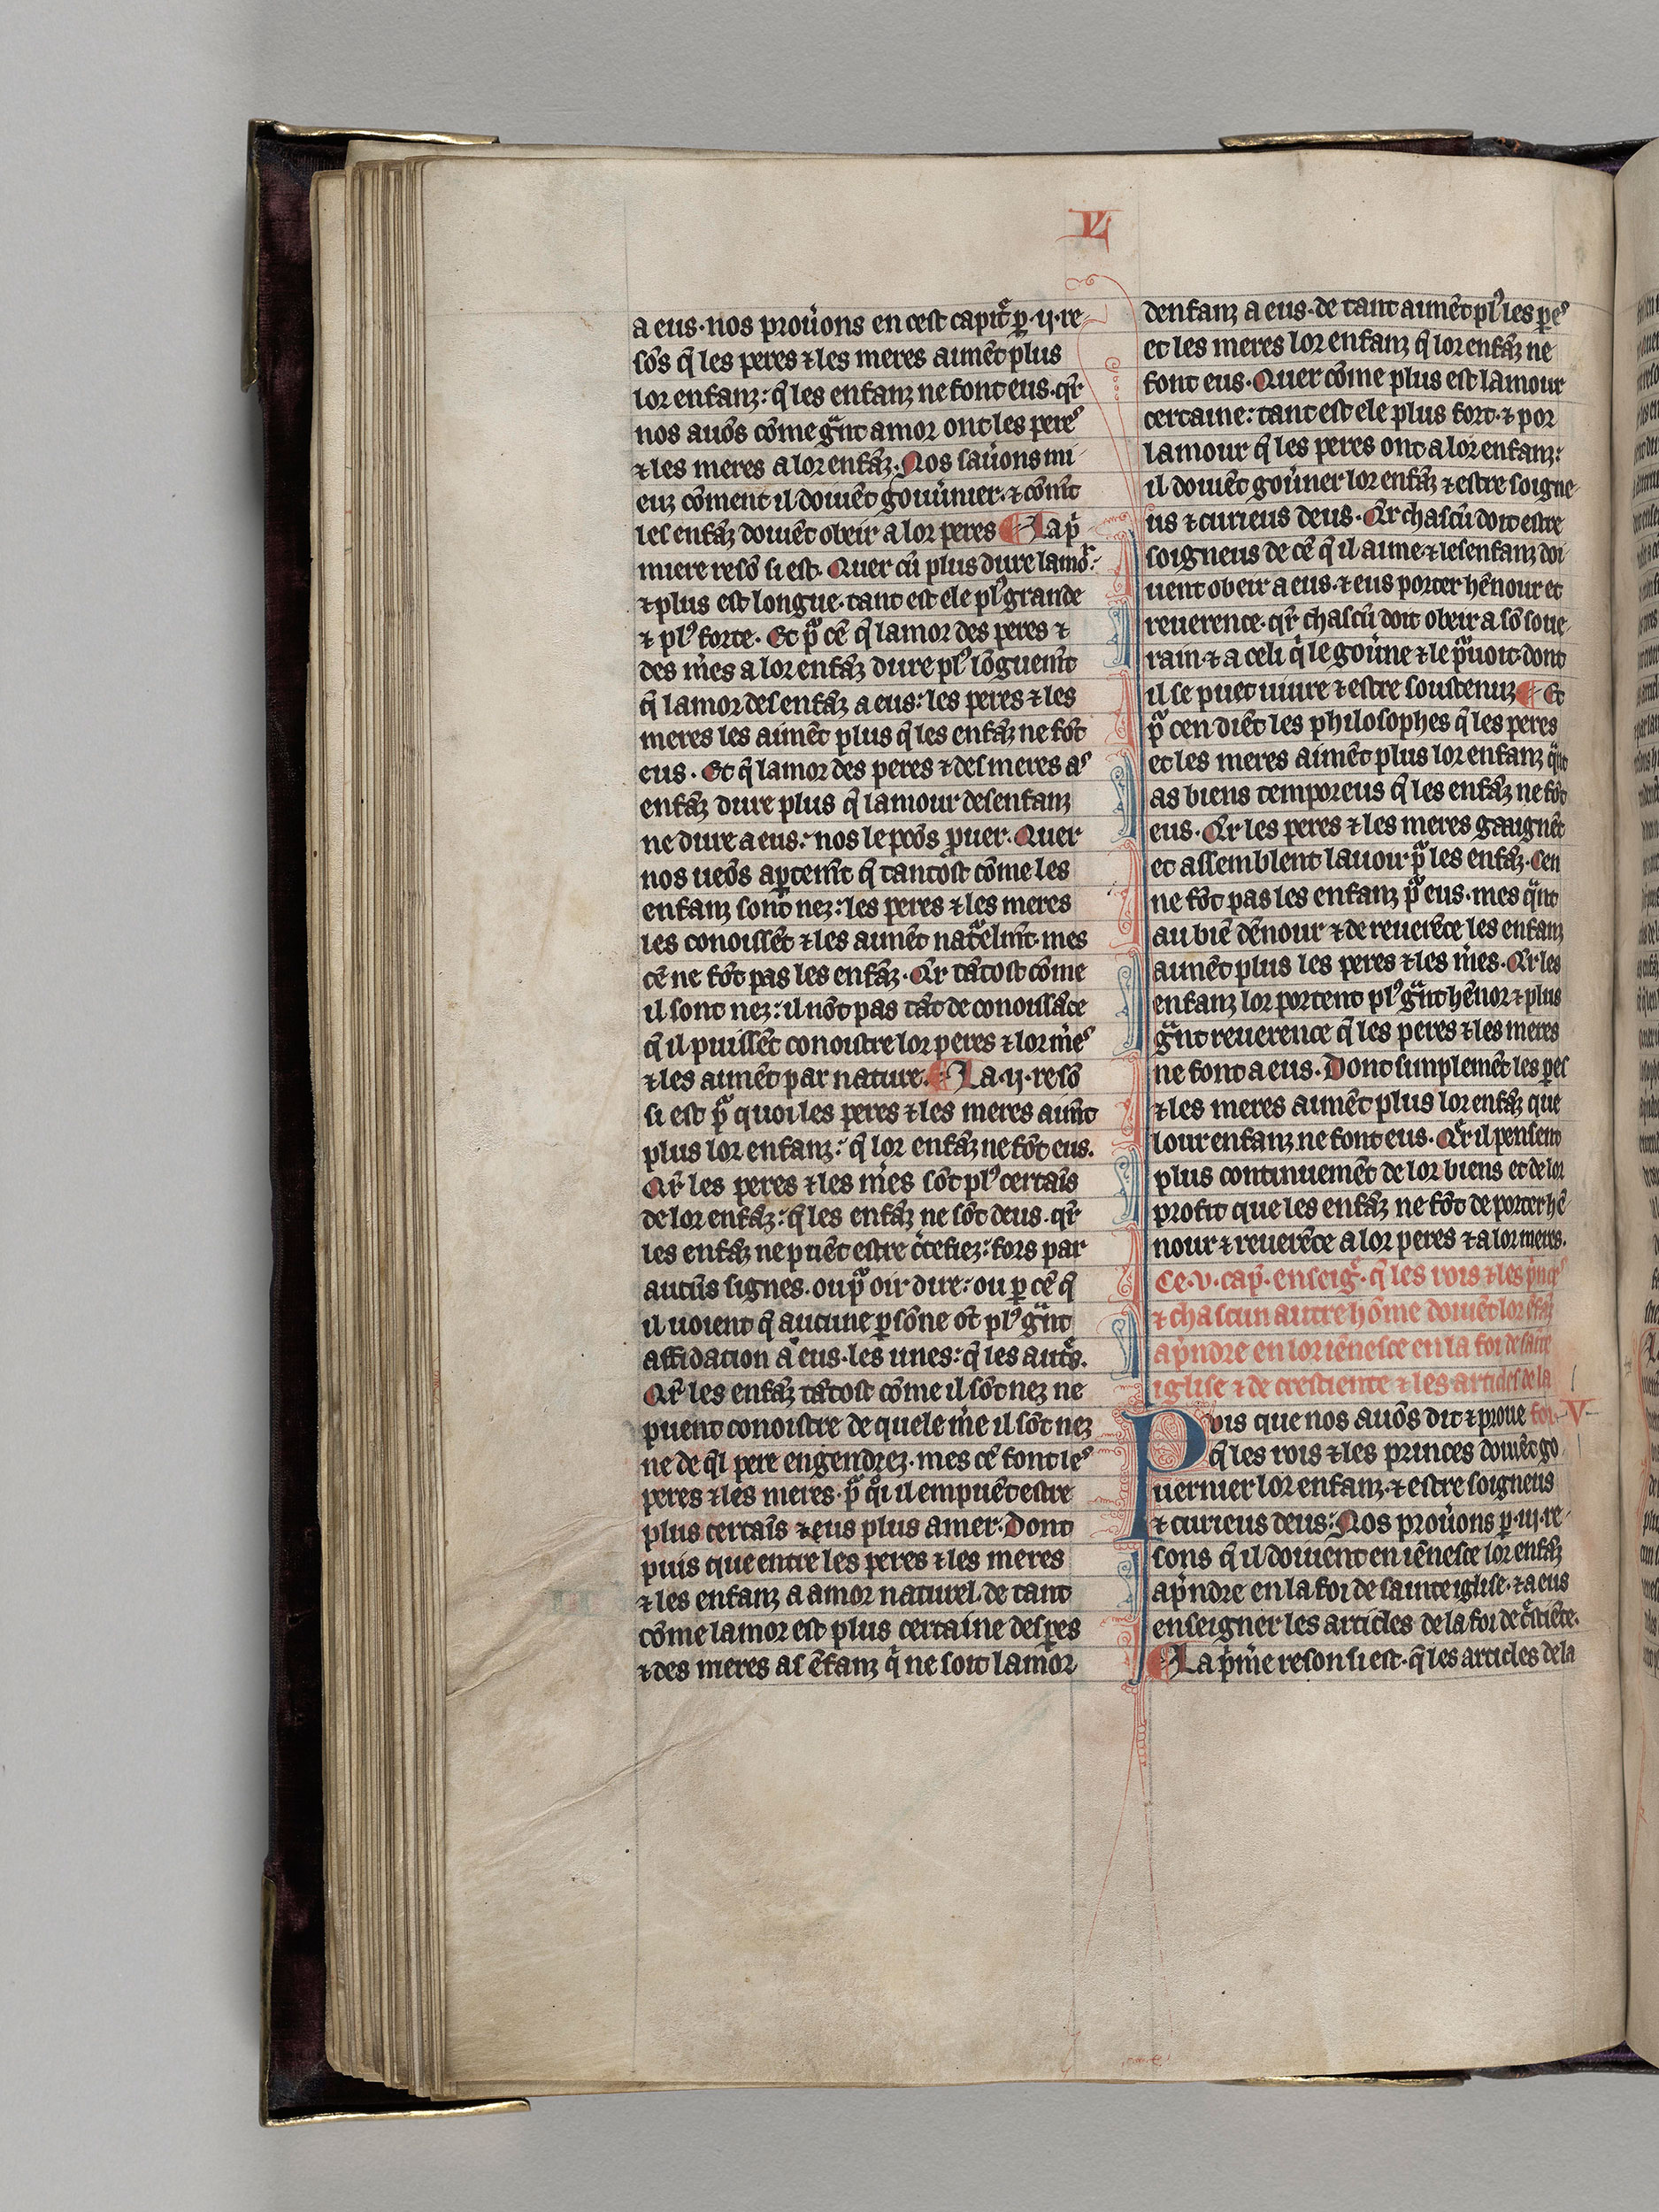 L
a eus· nos prouons en cest capitᷓ p̱ ·ij· re-
sōs q̄ les peres ⁊ les meres aimēt plus
lor enfanz: q̄ les enfanz ne font eus. qr̄
nos auōs cōme gᷓnt amor ont les peres
⁊ les meres a lor enfāz. Nos sauons mi-
euz cōment il doiuēt gouu̾nier. ⁊ cōm̄t
les enfāz doiuēt obeir a lor peres ¶ La p̾
miere resō si est. Quer cū plus dure lamor:
⁊ plus est longue. tant est ele plꝰ grande
⁊ plꝰ forte. Et pᷓ cē q̄ lamor des peres ⁊
des m̾es a lor enfāz dure plꝰ lōguem̄t
q̄ lamor des enfāz a eus: les peres ⁊ les
meres les aimēt plus q̄ les enfāz ne fōt
eus. Et q̄ lamor des peres ⁊ des meres as
enfāz dure plus q̄ lamour des enfanz
ne dure a eus: nos le poōs ꝓuer. Quer
nos ueōs ap̱tem̄t q̄ tantost cōme les
enfanz sont nez: les peres ⁊ les meres
les conoissēt ⁊ les aimēt natᷓelm̄t. mes
cē ne fōt pas les enfāz. Qr̄ tātost cōme
il sont nez: il nōt pas tāt de conoissāce
q̄ il puissēt conoistre lor peres ⁊ lor m̾es
⁊ les aimēt par nature. ¶ La ·ij· resō
si est pᷓ quoi les peres ⁊ les meres aim̄t
plus lor enfanz: q̄ lor enfāz ne fōt eus.
Qr̄ les peres ⁊ les m̾es sōt plꝰ certaīs
de lor enfāz: q̄ les enfāz ne sōt deus. qr̄
les enfāz ne puēt estre c̾tefiez: fors par
aucūs signes. ou pᷓ oir dire: ou p̱ cē q̄
il uoient q̄ aucune p̱sōne ōt plꝰ gᷓnt
affidacion a eus. les unes: q̄ les autᷓs.
Qr̄ les enfāz tātost cōme il sōt nez ne
puent conoistre de quele m̾e il sōt nez
ne de q̄l pere engendrez. mes cē font les
peres ⁊ les meres. pᷓ qͥ il em puēt estre
plus certaīs ⁊ eus plus amer. Dont
puis que entre les peres ⁊ les meres
⁊ les enfanz a amor naturel. de tant
cōme lamor est plus certaine des p̱es
⁊ des meres as ēfanz q̄ ne soit lamor
denfanz a eus. de tant aimēt plꝰ les p̱es
et les meres lor enfanz q̄ lor enfāz ne
font eus. Quer cōme plus est lamour
certaine: tant est ele plus fort. ⁊ por
lamour q̄ les peres ont a lor enfanz:
il doiuēt gou̾ner lor enfāz ⁊ estre soigne-
us ⁊ curieus deus. Qr̄ chascū doit estre
soigneus de cē q̄ il aime. ⁊ les enfanz doi-
uent obeir a eus. ⁊ eus porter hēnour et
reuerence. qr̄ chascū doit obeir a sō soue-
rain. ⁊ a celi qͥ le gou̾ne ⁊ le pᷓuoit. dont
il se puet uiure ⁊ estre soustenuz ¶ Et
pᷓ cen diēt les philosophes q̄ les peres
et les meres aimēt plus lor enfanz qᷓnt
as biens temporeus q̄ les enfāz ne fōt
eus. Qr̄ les peres ⁊ les meres gaaignēt
et assemblent lauoir pᷓ les enfāz. Cen
ne fōt pas les enfanz pᷓ eus. mes qᷓnt
au biē dēnour ⁊ de reuerēce les enfanz
aimēt plus les peres ⁊ les m̾es. Qr̄ les
enfanz lor portent plꝰ gᷓnt hēnor ⁊ plus
gᷓnt reuerence q̄ les peres ⁊ les meres
ne font a eus. Dont simplemēt les p̱es
⁊ les meres aimēt plus lor enfāz que
lour enfanz ne font eus. Qr̄ il pensent
plus continuemēt de lor biens et de lor
profit que les enfāz ne fōt de porter hē-
nour ⁊ reuerēce a lor peres ⁊ a lor meres.
Ce ·v· cap̄. enseig̾. q̄ les rois ⁊ les p̾nces
⁊ chascun autre hōme doiuēt lor ēfāz
ap̾ndre en lor iēnesce en la foi de saīte
iglise ⁊ de crestiente ⁊ les articles de la
Puis que nos auōs dit ⁊ proue foi. V.
q̄ les rois ⁊ les princes doiuēt go-
uernier lor enfanz. ⁊ estre soigneus
⁊ curieus deus: Nos prouons p̱ ·iij· re-
sons q̄ il doiuent en iēnesce lor enfāz
ap̾ndre en la foi de sainte iglise. ⁊ a eus
enseigner les articles de la foi de cͥstiēte.
¶ La p̾m̾e reson si est. q̄ les articles de la